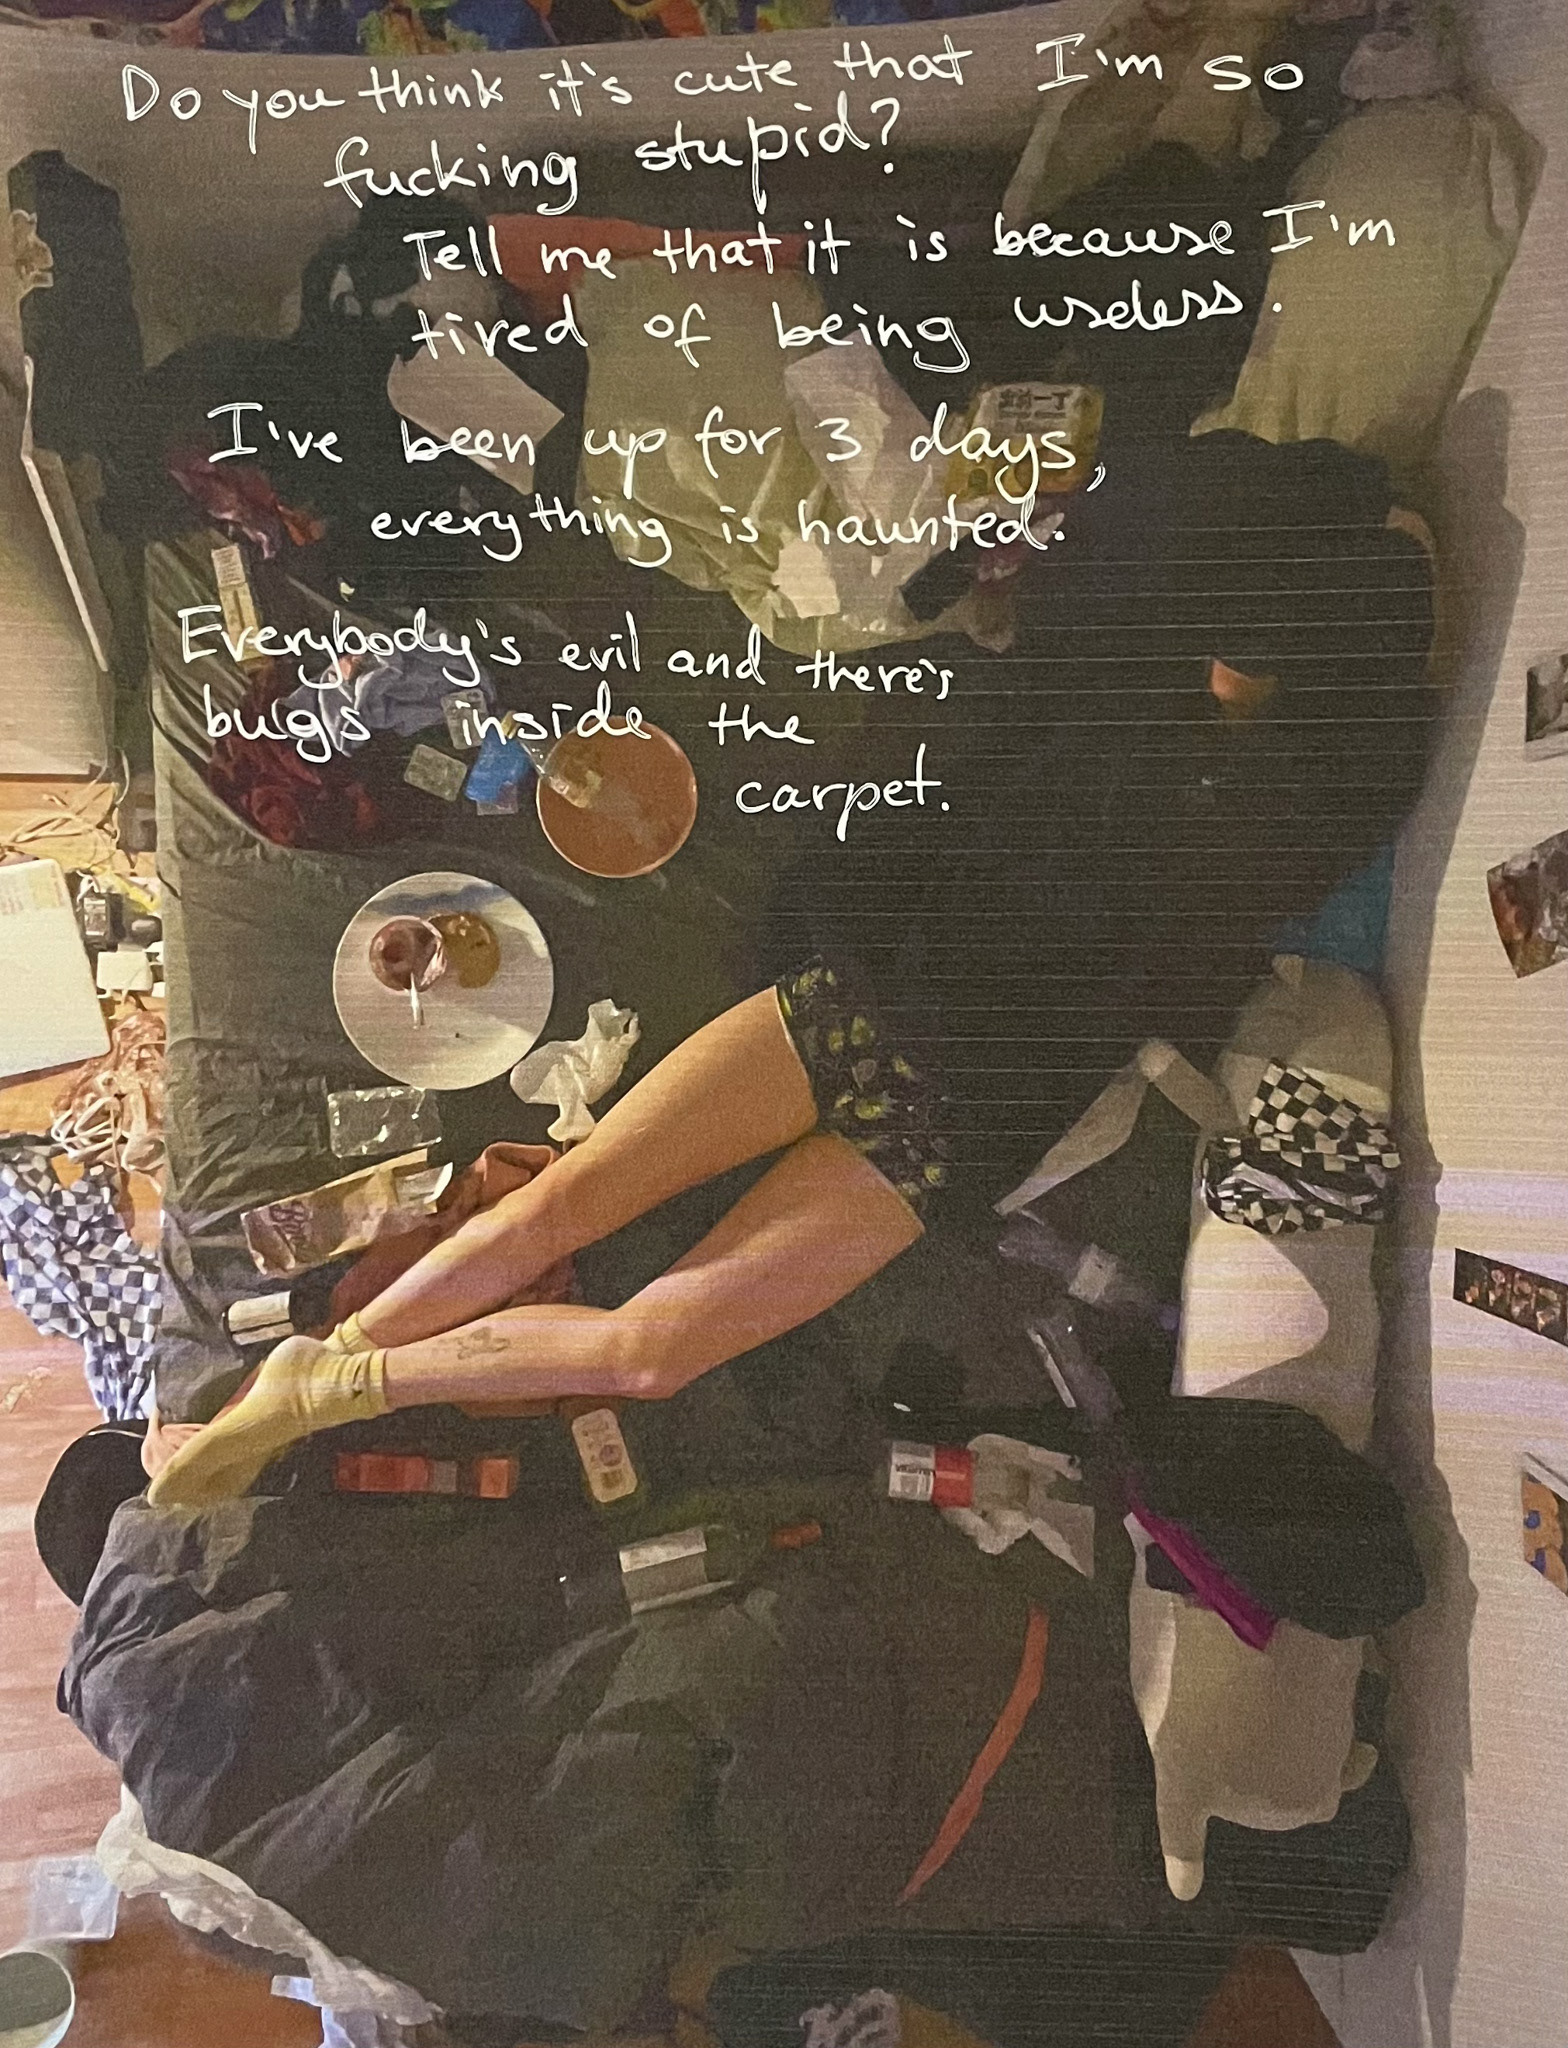 Do you think it's cute that I'm so
fucking stupid?
Tell me that it is because I'm
tired of being useless.
I've been up for 3 days,
everything is haunted.
Everybody's evil and there's
bugs inside the
carpet.